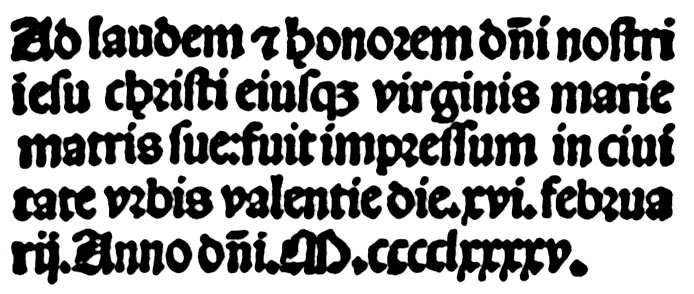 Ad laudem ⁊ honorem dñi noſtri
ieſu chriſti eiuſqꝫ virginis marie
matris ſue:fuit impreſſum in ciui
tate vrbis valentie die.xvi.februa
rij.Anno dñi.M.cccclxxxxv.